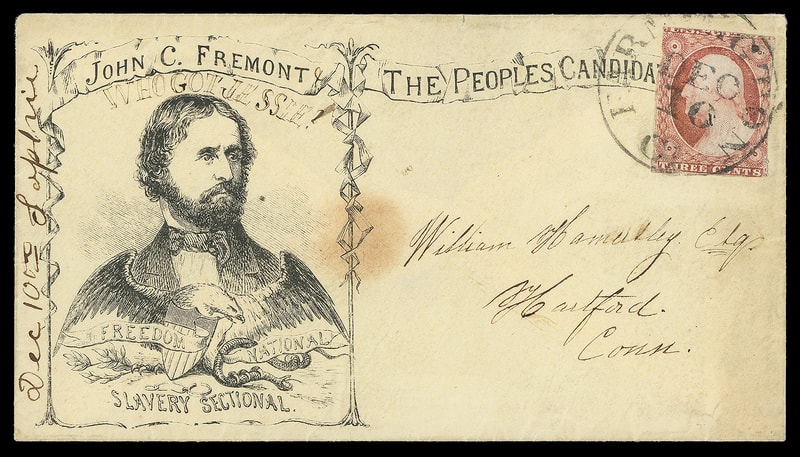 JOHN C. FREMONT
WHO GOT JESSIE!
THE PEOPLES CANDIDA
FREEDOM NATIONAL
SLAVERY SECTIONAL.
FARMINGTON
DEC
6
THREE CENTS
William Hamersley. Esq.
Hartford.
Conn.
Dec 10